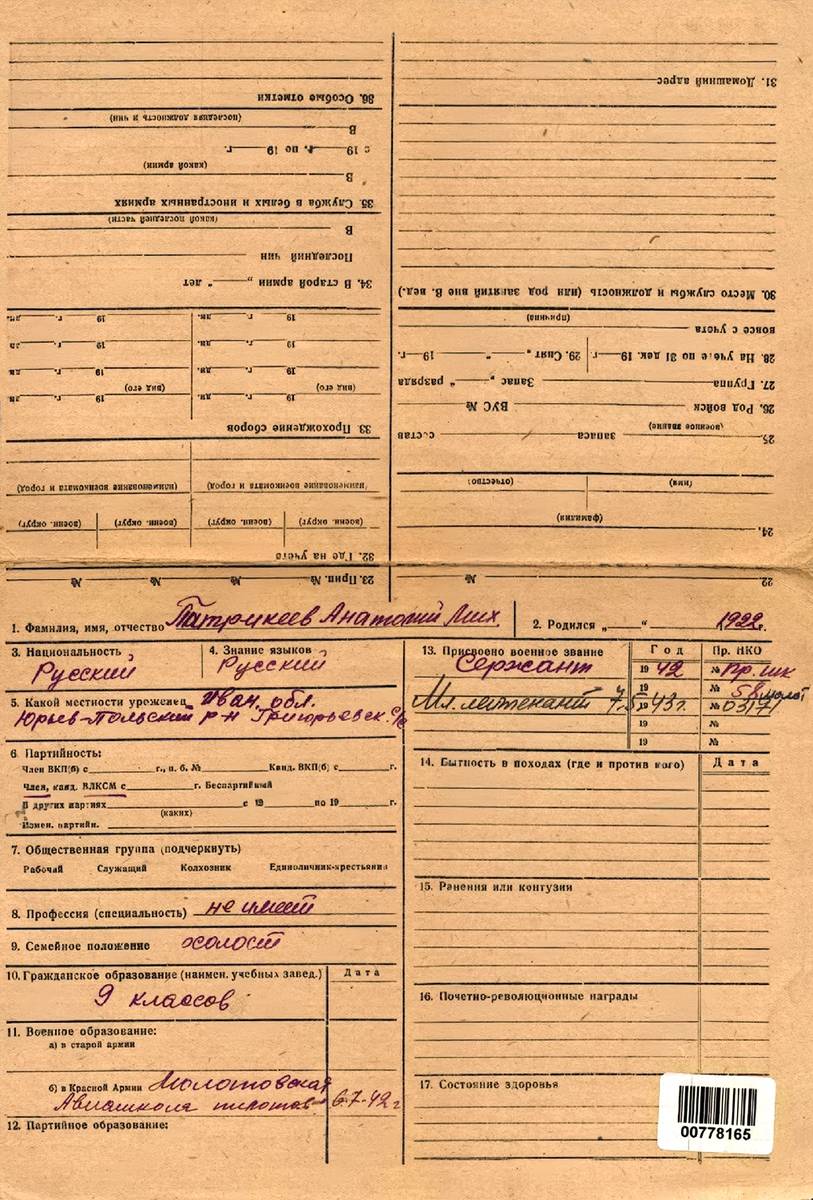 1. Фамилия, имя, отчество Патрикеев Анатолий Мих
2. Родился „ “ 1922 г.
3. Национальность
Русский
4. Знание языков
Русский
5. Какой местности уроженец Иван. обл.
Юрьев-Польский р-н Григорьевск. с/с
6. Партийность:
Член ВКП(б) с г., п. б. № Канд. ВКП(б) с г.
Член, канд. ВЛКСМ с г. Беспартийный
В других партиях с 19 по 19 г.
(каких)
Измен. партийн.
7. Общественная группа (подчеркнуть)
Рабочий Служащий Колхозник Единоличник-крестьянин
8. Профессия (специальность) не имеет
9. Семейное положение холост
10. Гражданское образование (наимен. учебных завед.) Дата
9 классов
11. Военное образование:
а) в старой армии
б) в Красной Армии Молотовская
Авиашкола пилотов 6-7-42 г
12. Партийное образование:
13. Присвоено военное звание Год Пр. НКО
Сержант 1942 № Пр. шк
19 № 58
Мл. лейтенант 1943 г. № 03171
19 №
19 №
14. Бытность в походах (где и против кого) Дата
15. Ранения или контузии
16. Почетно-революционные награды
17. Состояние здоровья
00778165
22 №
23. Прип. № № № №
24.
(фамилия)
(имя) (отчество)
25. запаса состав
(военное звание)
26. Род войск ВУС №
27. Группа Запас „ “ разряда
28. На учете по 31 дек. 19 г. 29. Снят „ “ 19 г.
вовсе с учета
(причина)
30. Место службы и должность (или род занятий вне В. вед.)
31. Домашний адрес
32. Где на учете
(военн. округ) (военн. округ) (военн. округ) (военн. округ)
(наименование военкомата и город) (наименование военкомата и город)
33. Прохождение сборов
(вид его) 19 г. дн. (вид его) 19 г. дн.
19 г. дн. 19 г. дн.
19 г. дн. 19 г. дн.
19 г. дн. 19 г. дн.
34. В старой армии „ “ лет
Последний чин
В
(какой последней части)
35. Служба в белых и иностранных армиях
В
(какой армии)
с 19 г. по 19 г.
В
(последняя должность и чин)
36. Особые отметки